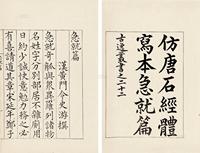 仿唐石經體
寫本急就篇
古逸叢書之二十二
急就篇
漢黃門令史游撰
急就奇觚與衆異羅列諸物
名姓字分別部居不雜廁用
日約少誠快意勉力務之必
有喜請道其章宋延年鄭子